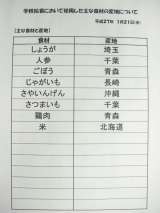 学校給食において使用した主な食材の産地について
平成27年 1月21日(水)
【主な食材と産地】
食材 産地
しょうが 埼玉
人参 千葉
ごぼう 青森
じゃがいも 長崎
さやいんげん 沖縄
さつまいも 千葉
鶏肉 青森
米 北海道